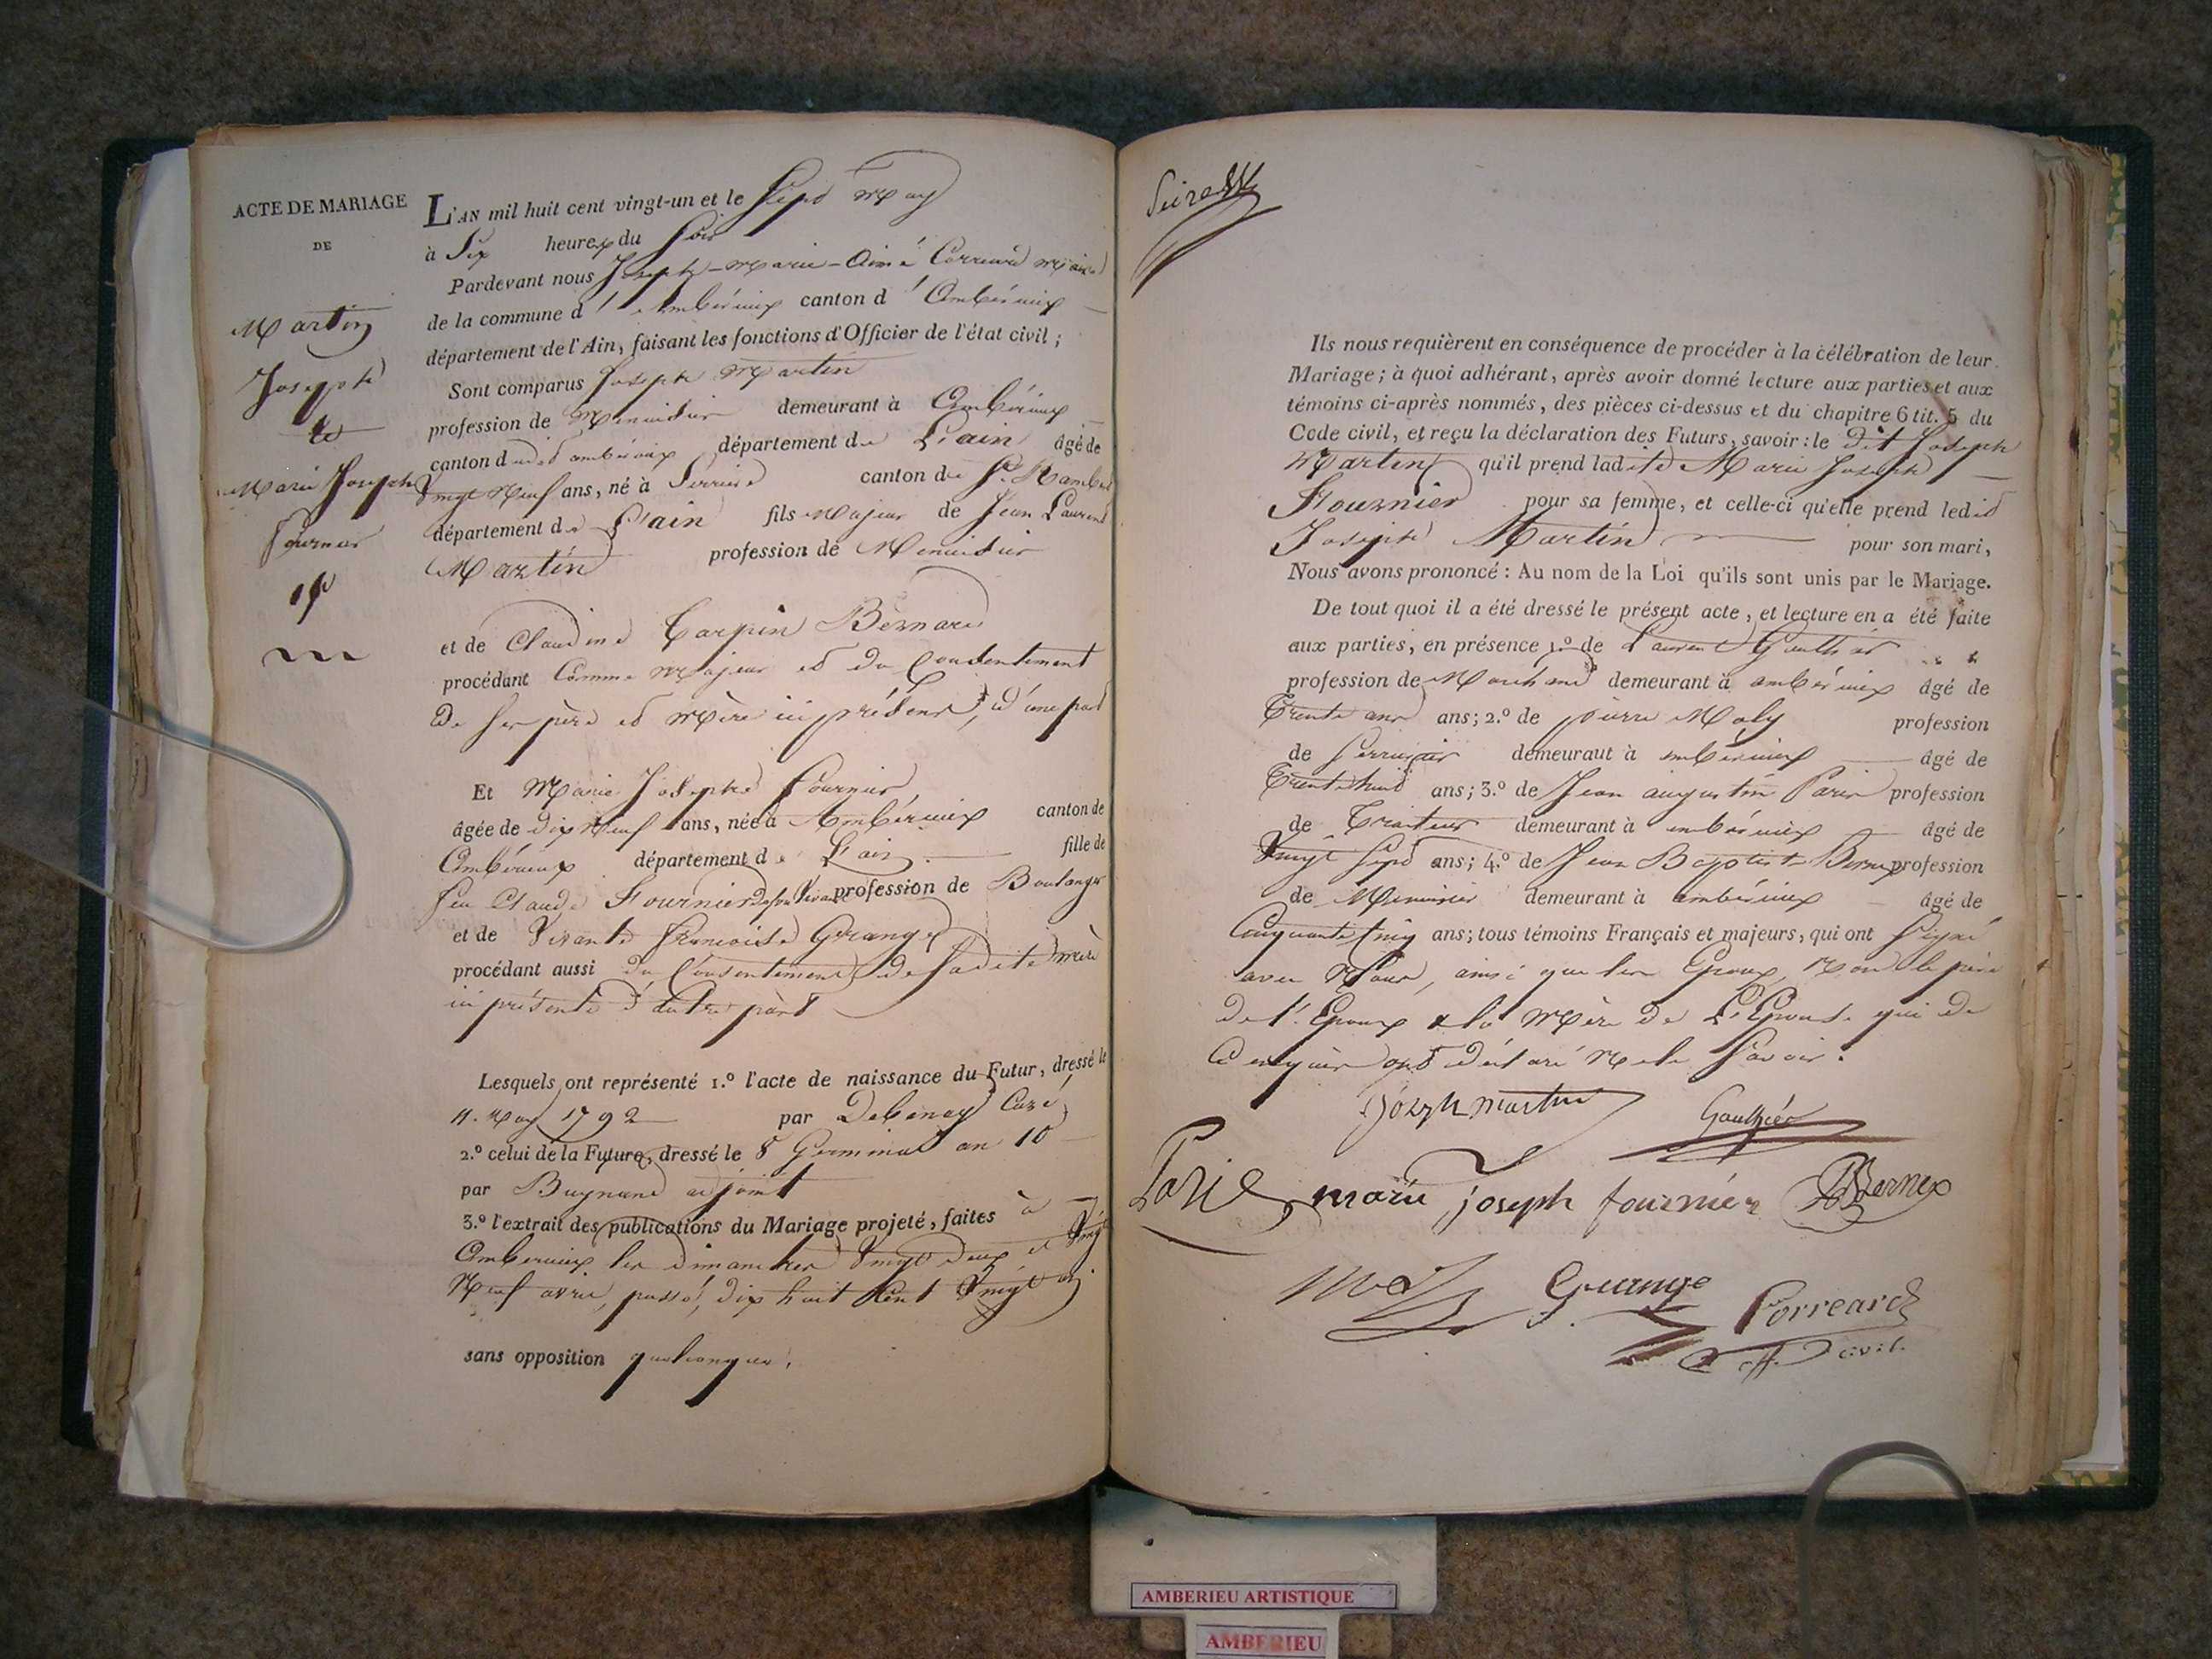 ACTE DE MARIAGE
DE
Martin
Joseph
et
Marie Joseph
Fournier
L'AN mil huit cent vingt-un et le Sept May
à Six heures du Soir
Pardevant nous Joseph-Marie-Aimé Correard Maire
de la commune d'Ambérieux canton d'Ambérieux
département de l'Ain, faisant les fonctions d'Officier de l'état civil ;
Sont comparus Joseph Martin
profession de Menuisier demeurant à Ambérieux
canton dudit ambérieux département de L'ain âgé de
Vingt Neuf ans, né à Serrière canton de St. Rambert
département de L'ain fils Majeur de Jean Laurent
Martin profession de Menuisier
et de Claudine Carpin Bernard
procédant Comme Majeur et du Consentement
De ses père et Mère ici présents, d'une part
Et Marie Josephe Fournier,
âgée de dix Neuf ans, née à Ambérieux canton de
Ambérieux département de L'ain fille de
feu Claude Fournier de son Vivant profession de Boulanger
et de Vivante francoise Grange
procédant aussi du Consentement de sadite mère
ici présente d'autre part
Lesquels ont représenté 1.º l'acte de naissance du Futur, dressé le
11. May 1792 par Debeney Curé
2.º celui de la Future, dressé le 8 Germinal an 10
par Bugnand adjoint
3.º l'extrait des publications du Mariage projeté, faites à
Amberieux les dimanches Vingt deux et Vingt
Neuf avril, passé, dix huit Cent Vingt un
sans opposition quelconque.
Ils nous requièrent en conséquence de procéder à la célébration de leur
Mariage ; à quoi adhérant, après avoir donné lecture aux parties et aux
témoins ci-après nommés, des pièces ci-dessus et du chapitre 6 tit. 5 du
Code civil, et reçu la déclaration des Futurs, savoir : le dit Joseph
Martin qu'il prend ladite Marie Joseph
Fournier pour sa femme, et celle-ci qu'elle prend ledit
Joseph Martin pour son mari,
Nous avons prononcé : Au nom de la Loi qu'ils sont unis par le Mariage.
De tout quoi il a été dressé le présent acte, et lecture en a été faite
aux parties, en présence 1.º de Laurent Gauthier
profession de Marchand demeurant à ambérieux âgé de
Trente ans ans ; 2.º de pierre Moly profession
de Serrurier demeurant à ambérieux âgé de
Trente huit ans ; 3.º de Jean augustin Paris profession
de Traiteur demeurant à ambérieux âgé de
Vingt Sept ans ; 4.º de Jean Baptiste Bernex profession
de Menuisier demeurant à ambérieux âgé de
Cinquante Cinq ans ; tous témoins Français et majeurs, qui ont Signé
avec Nous, ainsi que les Epoux, Non le père
de l'Epoux & la Mère de L'Epouse qui de
ce enquis ont déclaré Ne le Savoir.
joseph martin Gauthier
Paris marie joseph fournier JB Bernex
Grange Correard
off. civil.
AMBERIEU ARTISTIQUE
AMBERIEU